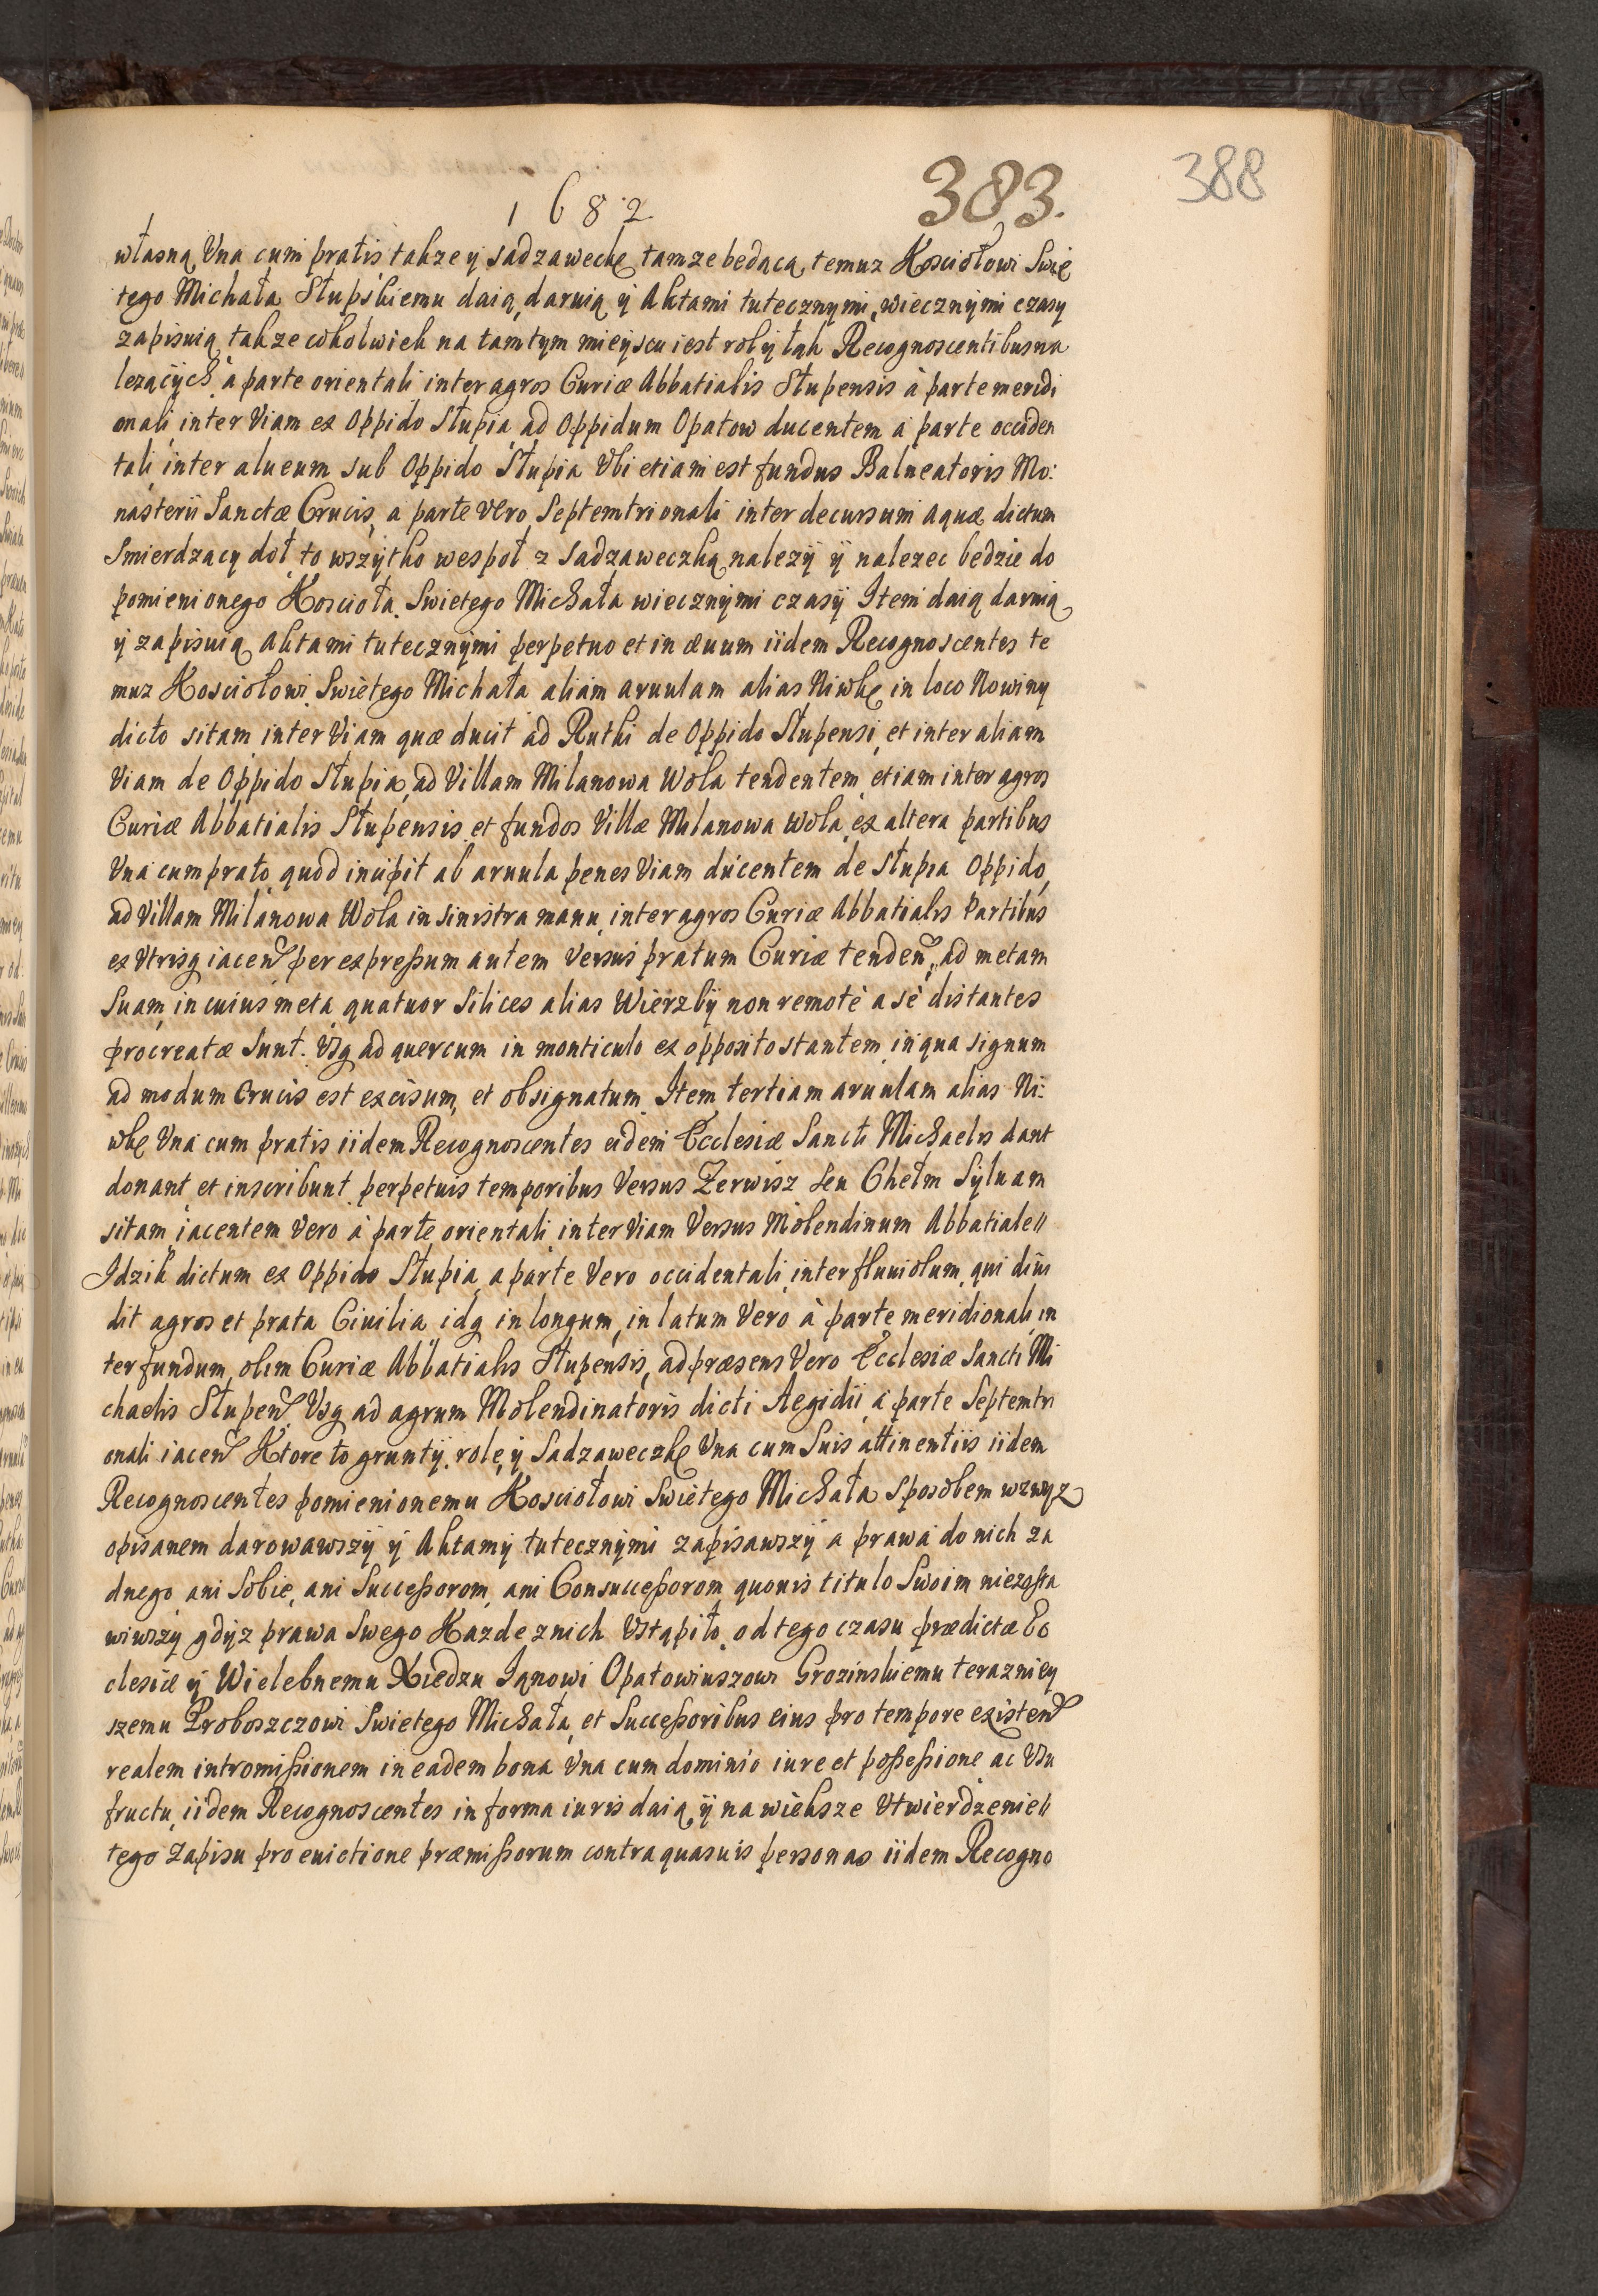 1682
383.
388
własną Vna cum pratis takze y sadzaweckę tamze bedącą temuz Kosciołowi Swię
tego Michała Słupskiemu daią, daruią ÿ Aktami tutecznymi, wiecznÿmi czasy
zapisuią takze cokolwiek na tamtym mieÿscu iest rolÿ łąk Recognoscentibus na
lezącÿch à parte orientali inter agros Curiæ Abbatialis Słupensis à parte meridi
onali inter Viam ex Oppido Słupia ad Oppidum Opatow ducentem à parte occiden
tali inter alueum sub Oppido Słupia Vbi etiam est fundus Balneatoris Mo:
nasterii Sanctæ Crucis, a parte Vero Septemtrionali inter decursum Aquæ dictum
Smierdzacy doł, to wszÿtko wespoł z sadzaweczką nalezÿ ÿ nalezec bedzie do
pomienionego Koscioła Swietego Michała wiecznÿmi czasÿ Item daią daruią
ÿ zapisuią Aktami tutecznÿmi perpetuo et in æuum iidem Recognoscentes te
muz Kosciołowi Swiętego Michała aliam aruulam alias Niwkę in loco Nowiny
dicto sitam inter Viam quæ ducit ad Rutki de Oppido Słupensi, et inter aliam
Viam de Oppido Słupia, ad Villam Milanowa Wola tendentem, etiam inter agros
Curiæ Abbatialis Słupensis et fundos Villæ Milanowa Wola ex altera partibus
Vna cum prato quod incipit ab aruula penes Viam ducentem de Słupia Oppido,
ad Villam Milanowa Wola in sinistra manu inter agros Curiæ Abbatialis Partibus
ex Vtrisq iacen per expreßum autem Versus pratum Curiæ tenden, ad metam
Suam in cuius meta quatuor Silices alias Wierzbÿ non remotè a sè distantes
procreatæ Sunt. Vsq ad quercum in monticulo ex opposito stantem in qua signum
ad modum Crucis est excisum, et obsignatum. Item tertiam aruulam alias Ni:
wkę Vna cum pratis iidem Recognoscentes eidem Ecclesiæ Sancti Michaelis dant
donant et inscribunt perpetuis temporibus Versus Zerwisz seu Chełm Sÿluam
sitam iacentem Vero à parte orientali inter Viam Versus Molendinum Abbatiale//
Idzik dictum ex Oppido Słupia a parte Vero occidentali inter fluuiolum, qui diui
dit agros et prata Ciuilia idq in longum, in latum Vero à parte meridionali in
ter fundum olim Curiæ Abbatialis Słupensis, ad præsens Vero Ecclesiæ Sancti Mi
chaelis Słupen Vsq ad agrum Molendinatoris dicti Aegidii à parte Septemtri
onali iacen Ktore to gruntÿ, role, ÿ Sadzaweczkę Vna cum Suis attinentiis iidem
Recognoscentes pomienionemu Kosciołowi Swiętego Michała sposobem wzwyz
opisanem darowawszÿ ÿ Aktamÿ tutecznÿmi zapisawszÿ a prawa do nich za
dnego ani Sobie, ani Succeßorom, ani Consucceßorom quouis titulo Swoim niezosta
wiwszÿ gdÿz prawa Swego Kazde znich Vstąpiło, od tego czasu prædictæ Ec
clesiæ ÿ Wielebnemu Xiedzu Ianowi Opatowiuszowi Grozinskiemu terazniey
szemu Proboszczowi Swietego Michała, et Succeßoribus eius pro tempore existen
realem intromißionem in eadem bona Vna cum dominio iure et poßeßione ac Vsu
fructu, iidem Recognoscentes in forma iuris daią, ÿ na większe Vtwierdzenie//
tego zapisu pro euictione præmißorum contra quasuis personas iidem Recogno